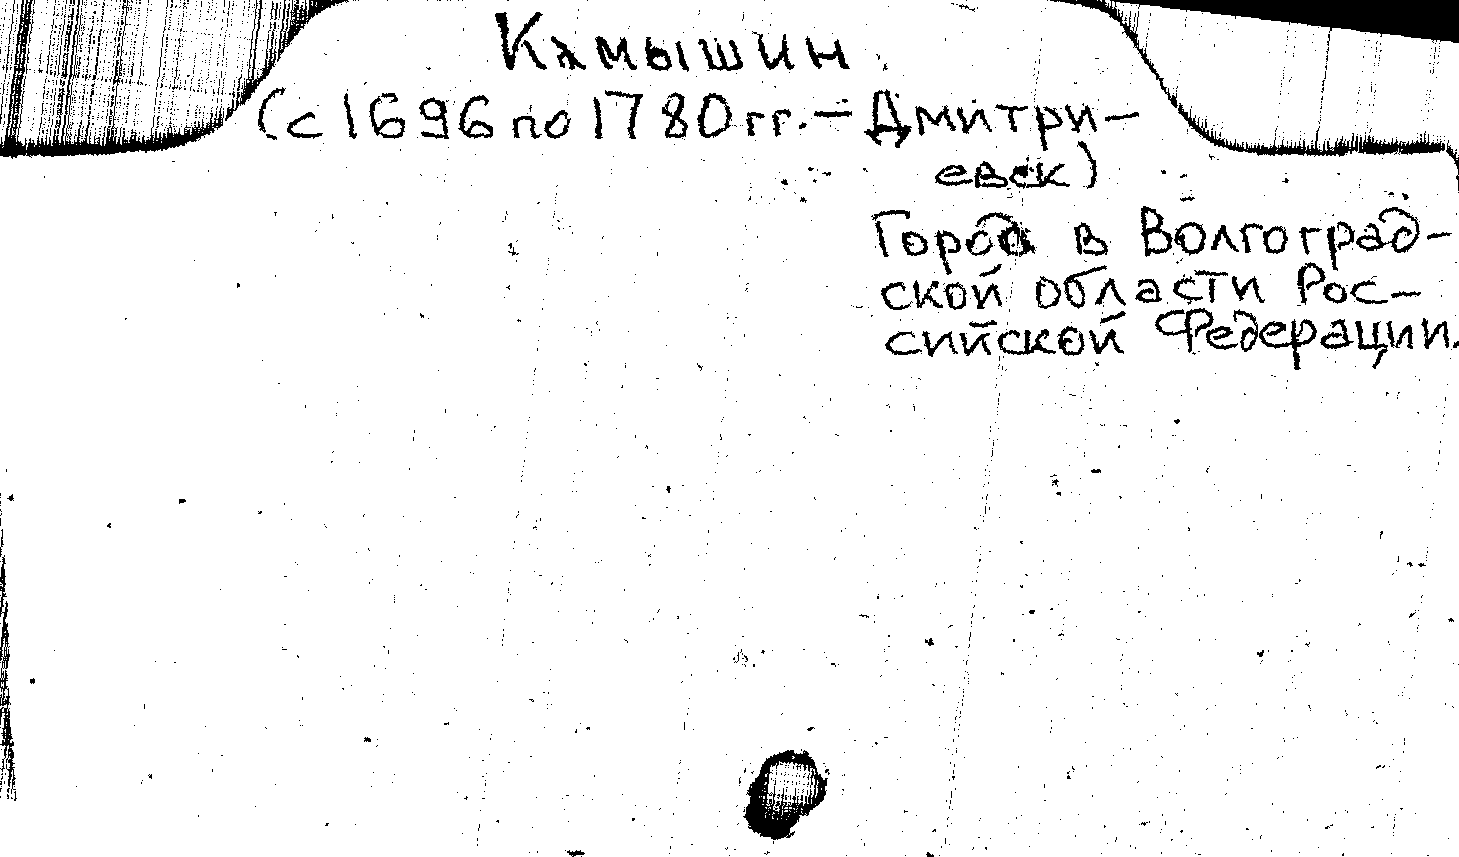 Камышин
(с 1696 по 1780 гг. – Дмитри-
евск)
Город в Волгоград-
ской области Рос-
сийской Федерации.